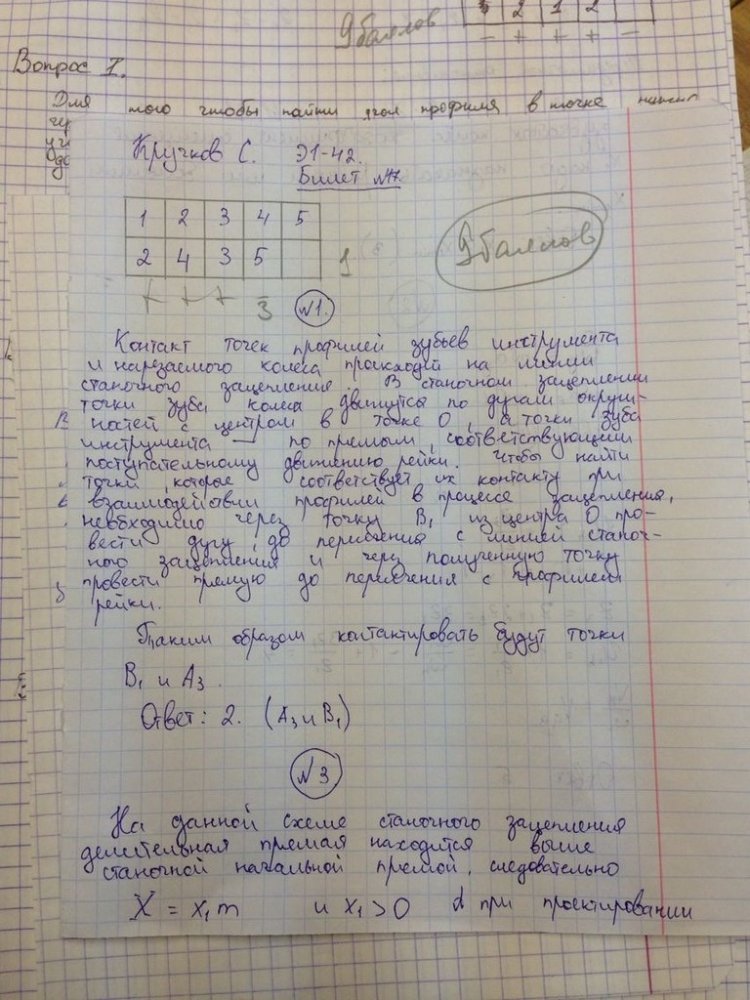 9 баллов
5 2 1 2
- + + + -
Вопрос I.
Для того чтобы найти угол профиля в точке
Кручков С. Э1-42.
Билет №17
1 2 3 4 5
2 4 3 5
+ + + - 3
9 баллов
№1.
Контакт точек профилей зубьев инструмента
и нарезаемого колеса происходит на линии
станочного зацепления. В станочном зацеплении
точки зуба колеса движутся по дугам окруж-
ностей с центром в точке О, а точки зуба
инструмента — по прямым, соответствующим
поступательному движению рейки. Чтобы найти
точки, которое соответствует их контакту при
взаимодействии профилей в процессе зацепления,
необходимо через точку B₁ из центра О про-
вести дугу до пересечения с линией станоч-
ного зацепления и через полученную точку
провести прямую до пересечения с профилем
рейки.
Таким образом контактировать будут точки
B₁ и A₃.
Ответ: 2. (A₃ и B₁)
№3
На данной схеме станочного зацепления
делительная прямая находится выше
станочной начальной прямой, следовательно
X = x₁m и x₁ > 0 при проектировании